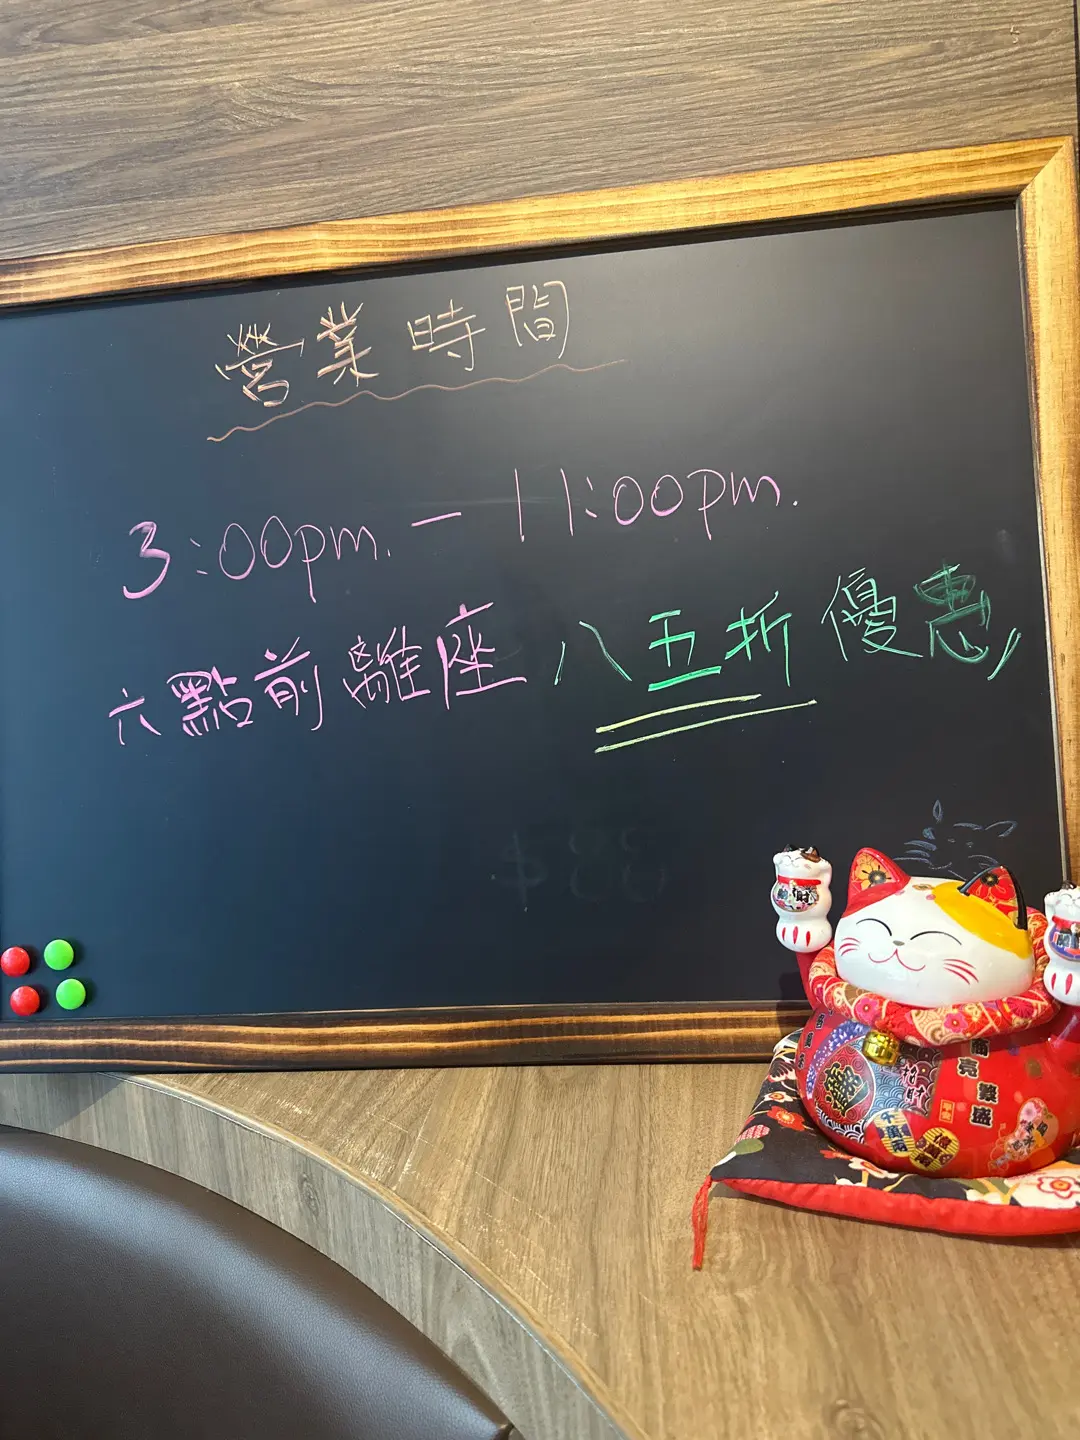 營業時間
3:00pm. — 11:00pm.
六點前離座 八五折優惠
$88
千萬兩
繁盛